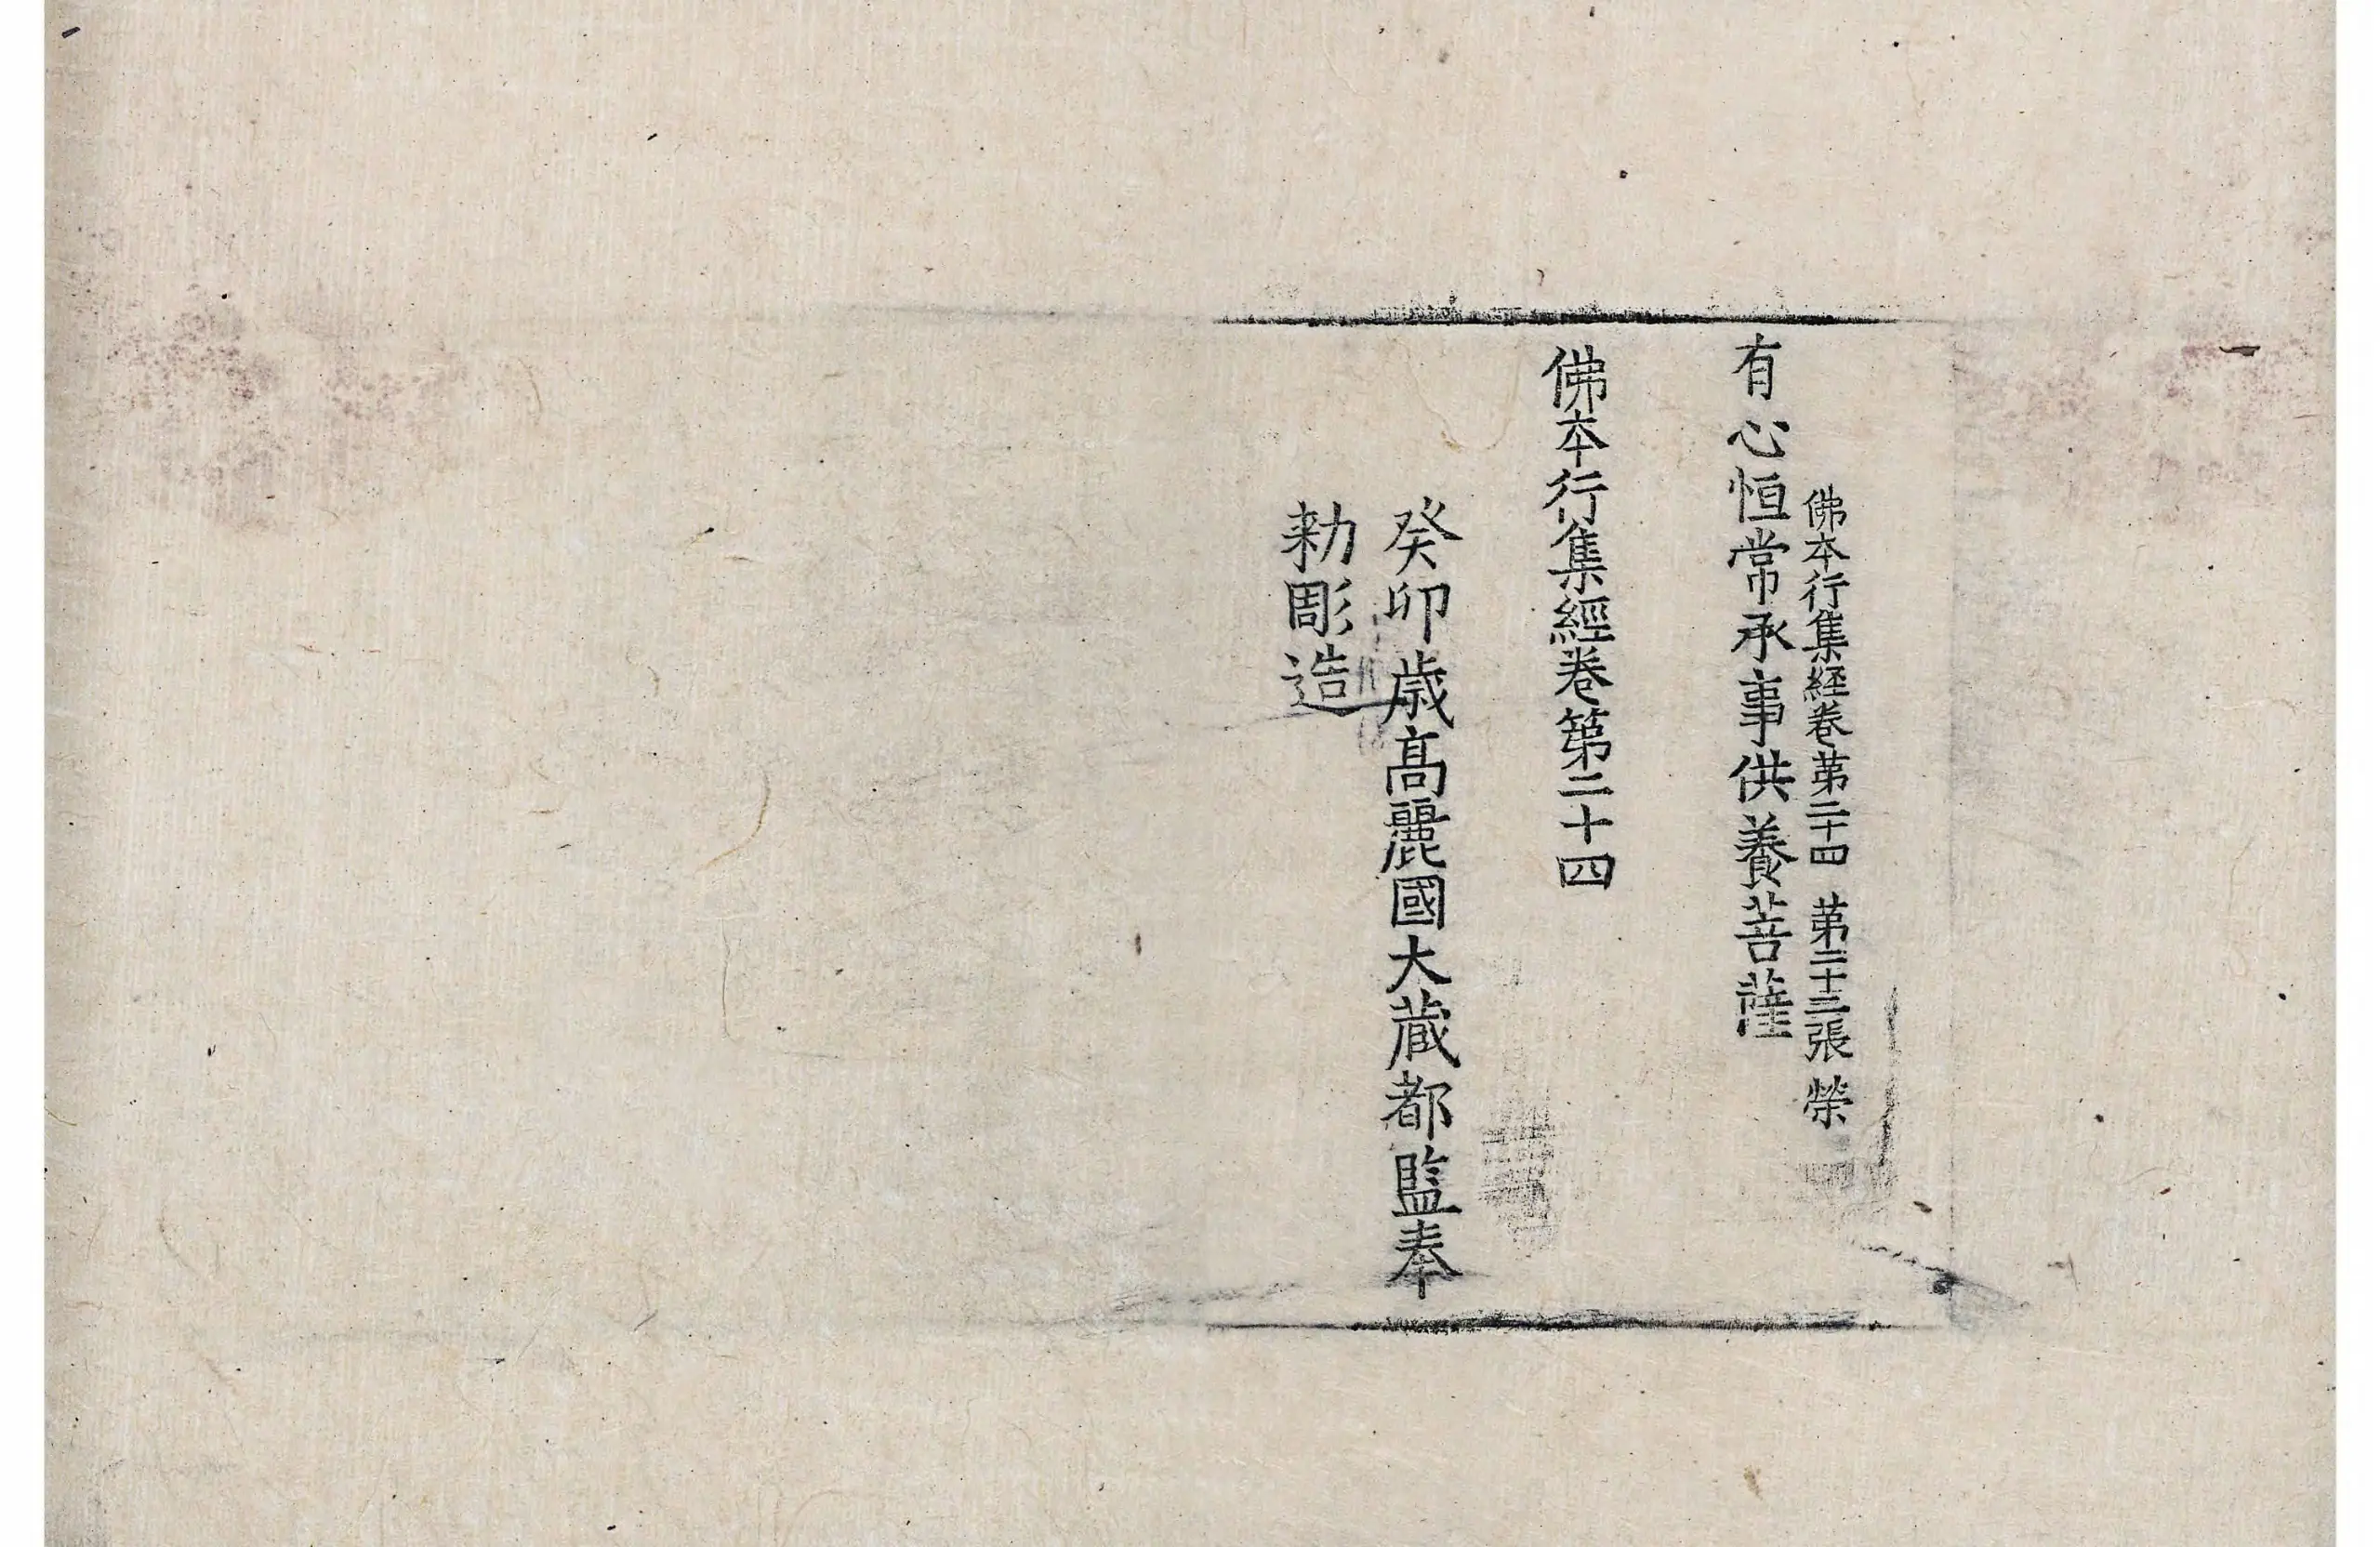 佛本行集経卷第二十四 第二十三張 榮
有心恒常承事供養菩薩
佛本行集經卷第二十四
癸卯歳高麗國大藏都監奉
勑彫造